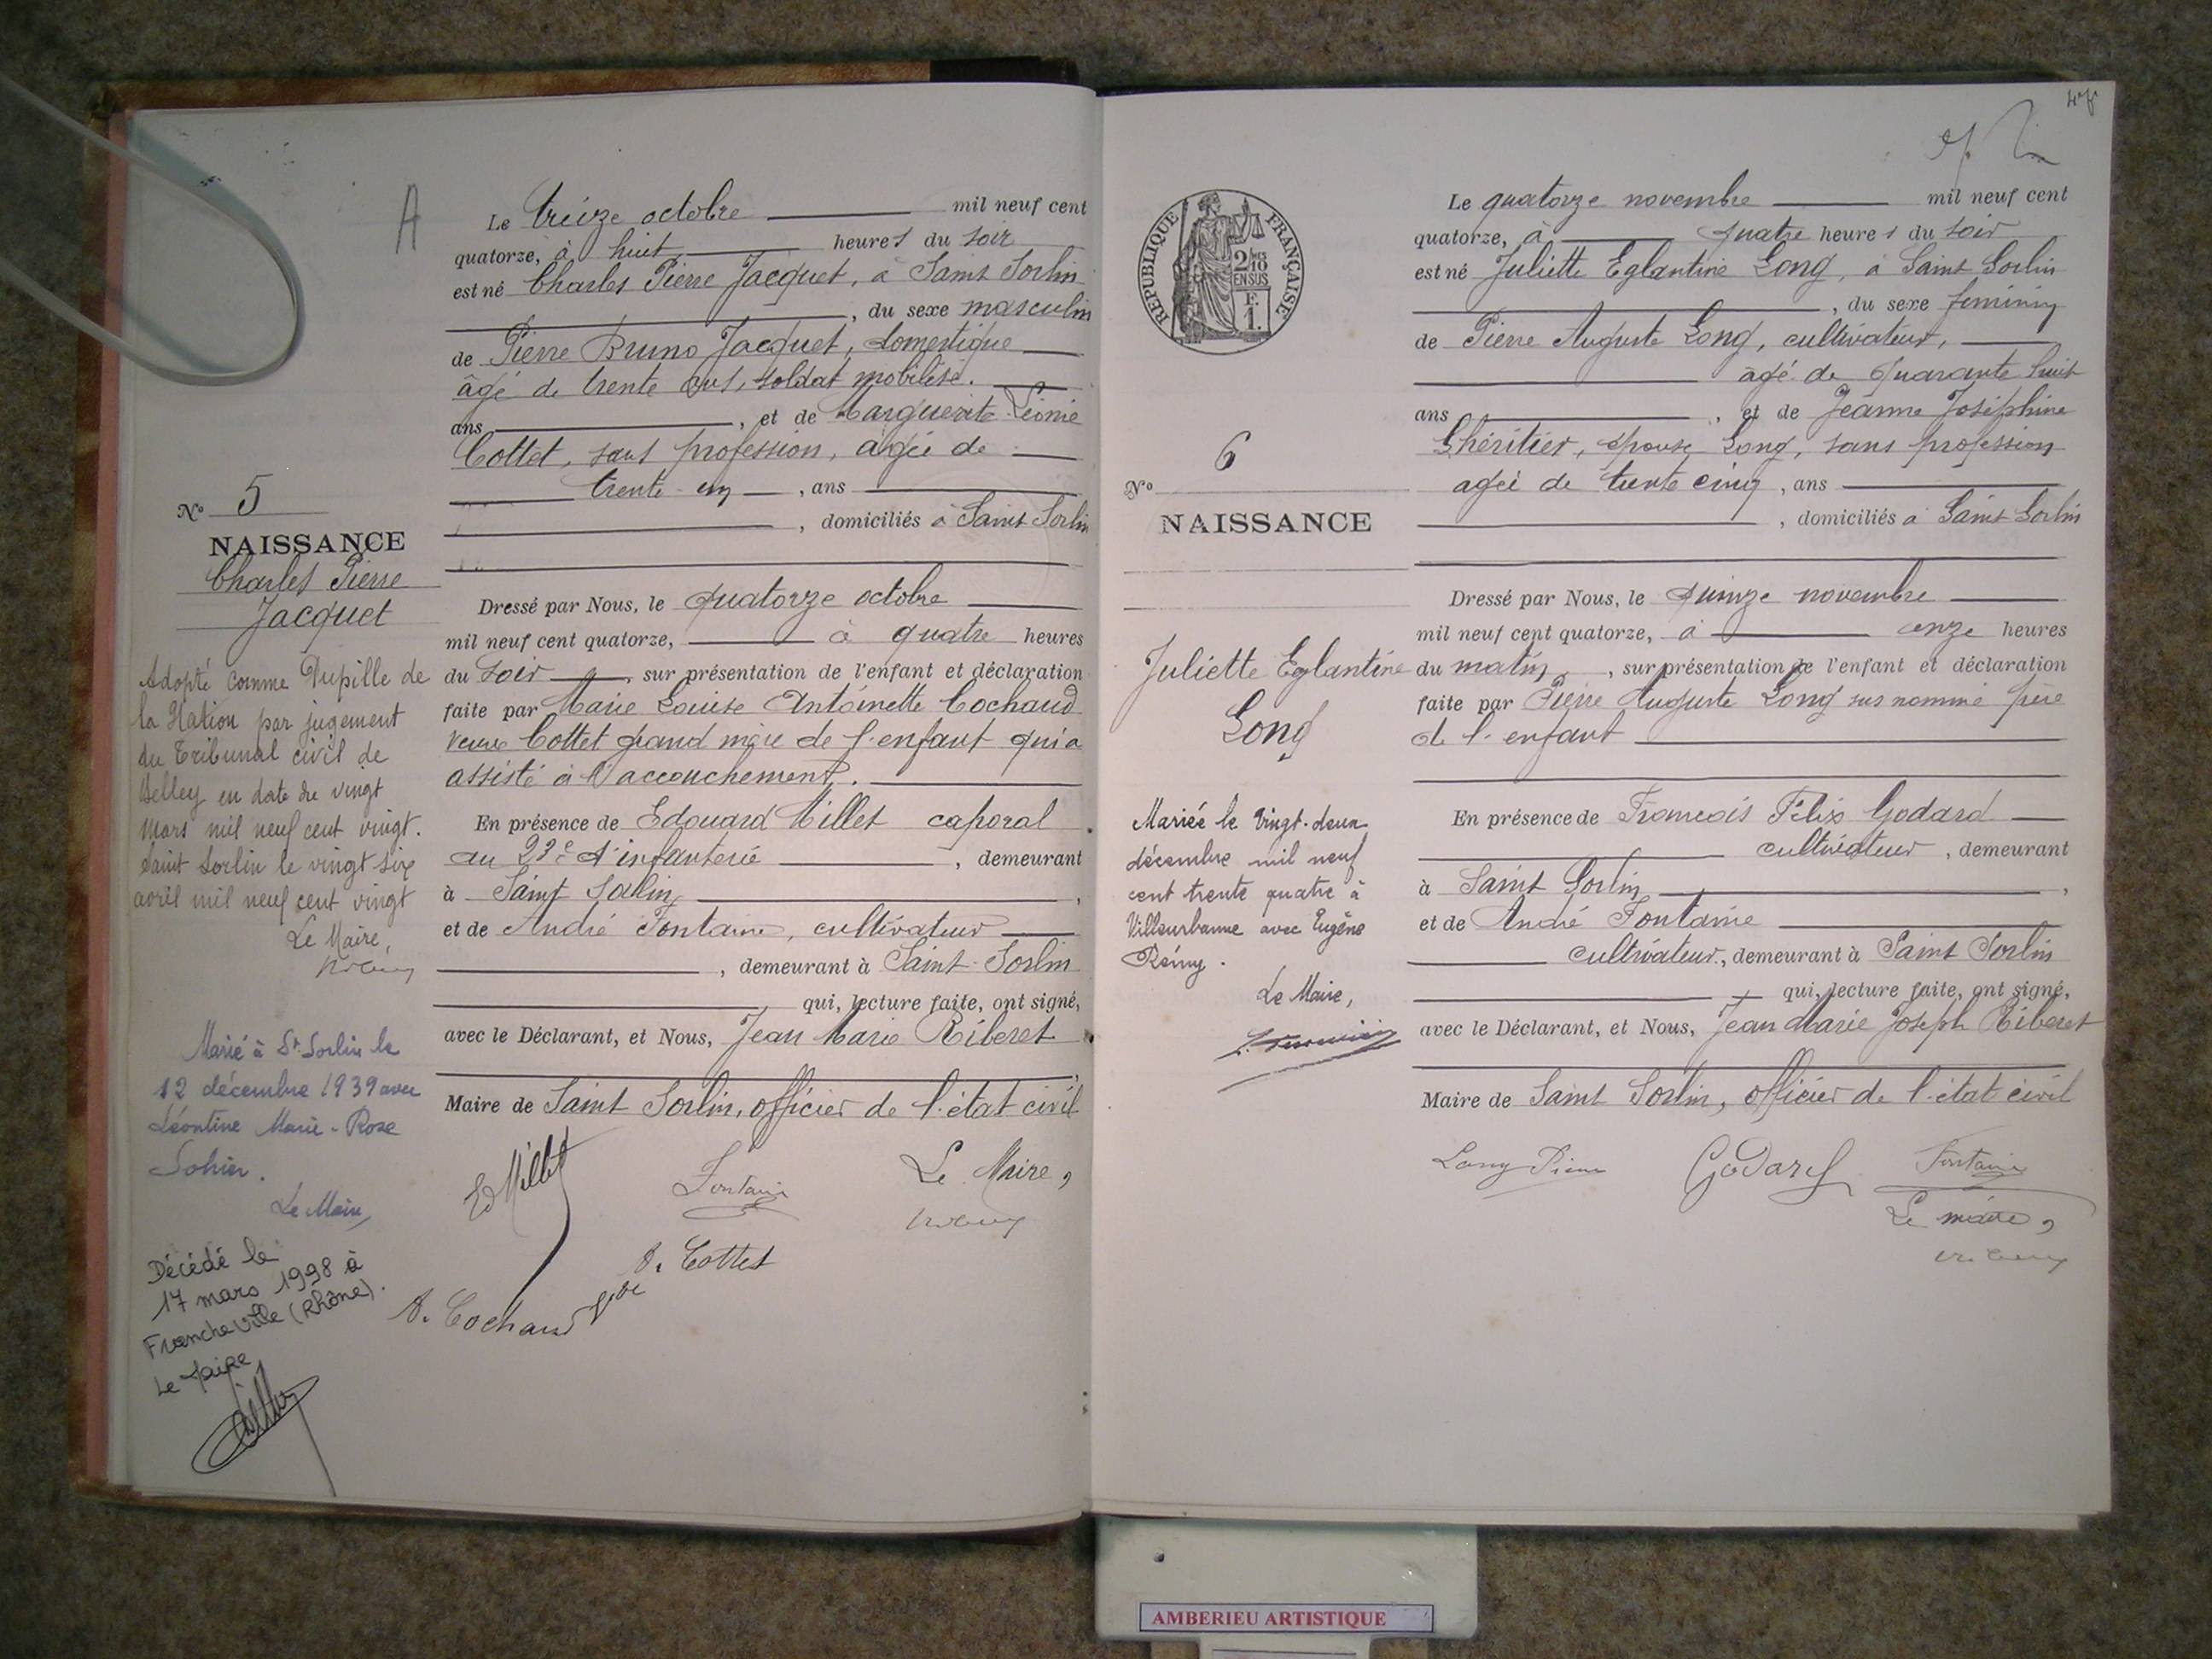 A
Le treize octobre mil neuf cent
quatorze, à huit heures du soir
est né Charles Pierre Jacquet, à Saint Sorlin
, du sexe masculin
de Pierre Bruno Jacquet, domestique
âgé de trente ans, soldat mobilisé.
ans , et de Marguerite Léonie
Cottet, sans profession, âgée de
trente-un , ans
, domiciliés à Saint Sorlin
N° 5
NAISSANCE
Charles Pierre
Jacquet
Adopté comme Pupille de
la Nation par jugement
du Tribunal civil de
Belley en date du vingt
Mars mil neuf cent vingt.
Saint Sorlin le vingt six
avril mil neuf cent vingt
Le Maire,
Marié à St Sorlin le
12 décembre 1939 avec
Léontine Marie-Rose
Sohier.
Le Maire,
Décédé le
17 mars 1998 à
Francheville (Rhône).
Le Maire
Dressé par Nous, le quatorze octobre
mil neuf cent quatorze, à quatre heures
du soir , sur présentation de l'enfant et déclaration
faite par Marie Louise Antoinette Cochaud
veuve Cottet grand mère de l'enfant qui a
assisté à l'accouchement.
En présence de Edouard Millet caporal
au 23e d'infanterie , demeurant
à Saint Sorlin ,
et de André Fontaine, cultivateur
, demeurant à Saint-Sorlin
qui, lecture faite, ont signé,
avec le Déclarant, et Nous, Jean Marie Riberet
Maire de Saint Sorlin, officier de l'état civil
Ed Millet
Fontaine
Le Maire,
A. Cochaud Vve A. Cottet
REPUBLIQUE FRANÇAISE
2/10
EN SUS
F.
1.
N° 6
NAISSANCE
Juliette Eglantine
Long
Mariée le vingt-deux
décembre mil neuf
cent trente quatre à
Villeurbanne avec Eugène
Rémy.
Le Maire,
Le quatorze novembre mil neuf cent
quatorze, à quatre heures du soir
est né Juliette Eglantine Long, à Saint Sorlin
, du sexe féminin
de Pierre Auguste Long, cultivateur,
âgé de quarante huit
ans , et de Jeanne Joséphine
Lhéritier, épouse Long, sans profession
agée de trente cinq , ans
, domiciliés à Saint Sorlin
Dressé par Nous, le quinze novembre
mil neuf cent quatorze, à onze heures
du matin , sur présentation de l'enfant et déclaration
faite par Pierre Auguste Long sus nommé père
de l'enfant
En présence de François Félix Godard
cultivateur , demeurant
à Saint Sorlin ,
et de André Fontaine
cultivateur, demeurant à Saint Sorlin
qui, lecture faite, ont signé,
avec le Déclarant, et Nous, Jean Marie Joseph Riberet
Maire de Saint Sorlin, officier de l'état civil
Long Pierre Godard Fontaine
Le maire,
AMBERIEU ARTISTIQUE